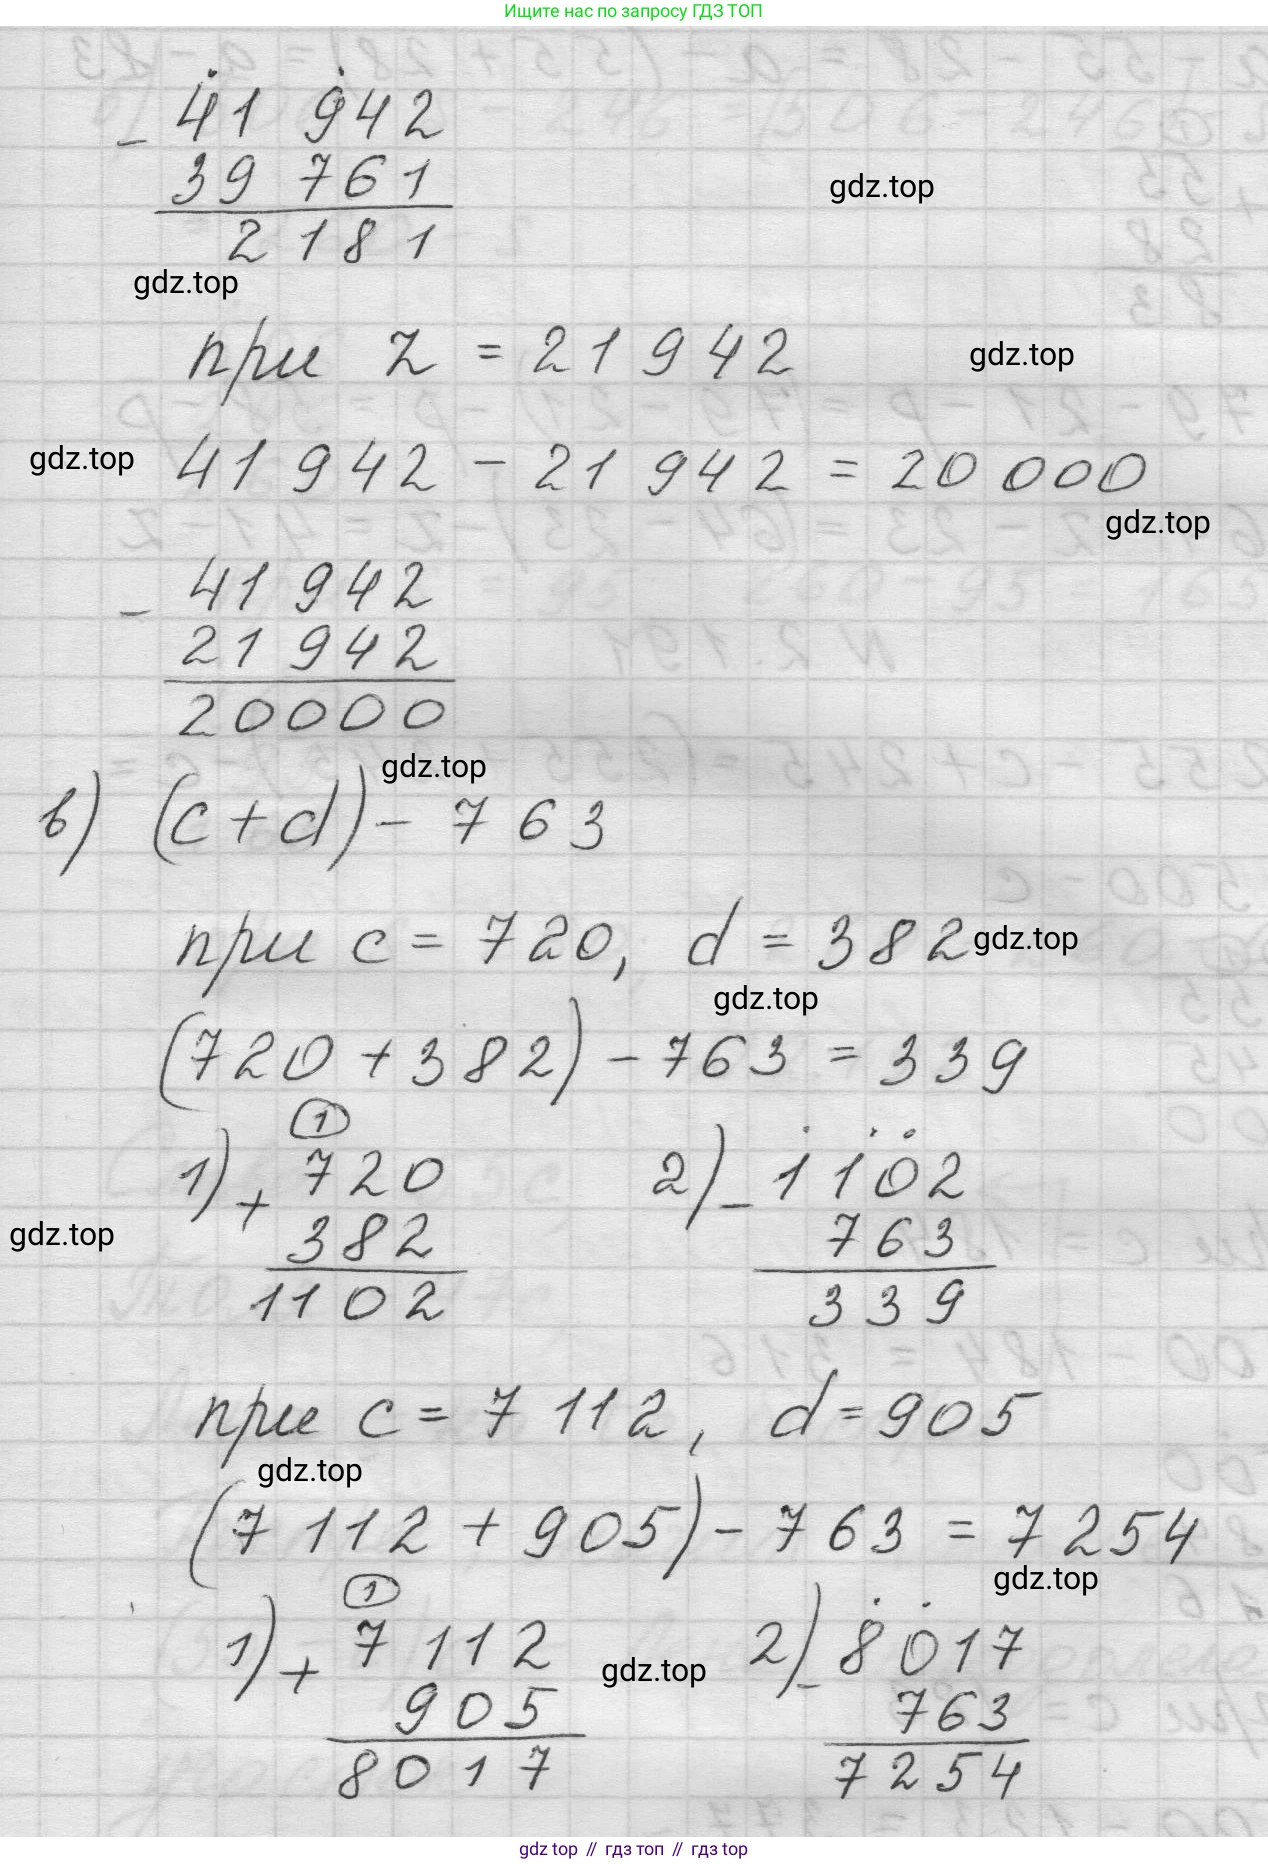 Ищите нас по запросу ГДЗ ТОП
41 942
-
39 761
gdz.top
2 181
gdz.top
при z = 21 942
gdz.top
gdz.top
41 942 - 21 942 = 20 000
gdz.top
41 942
-
21 942
20000
gdz.top
в) (c+d) - 763
при c = 720, d = 382
gdz.top
gdz.top
(720 + 382) - 763 = 339
1
1) + 720 2) - 1102
382 763
gdz.top
1102 339
при c = 7 112, d = 905
gdz.top
(7 112 + 905) - 763 = 7 254
gdz.top
1
1) + 7 112 2) - 8 017
gdz.top
905 763
8017 7254
gdz top // гдз топ // гдз top